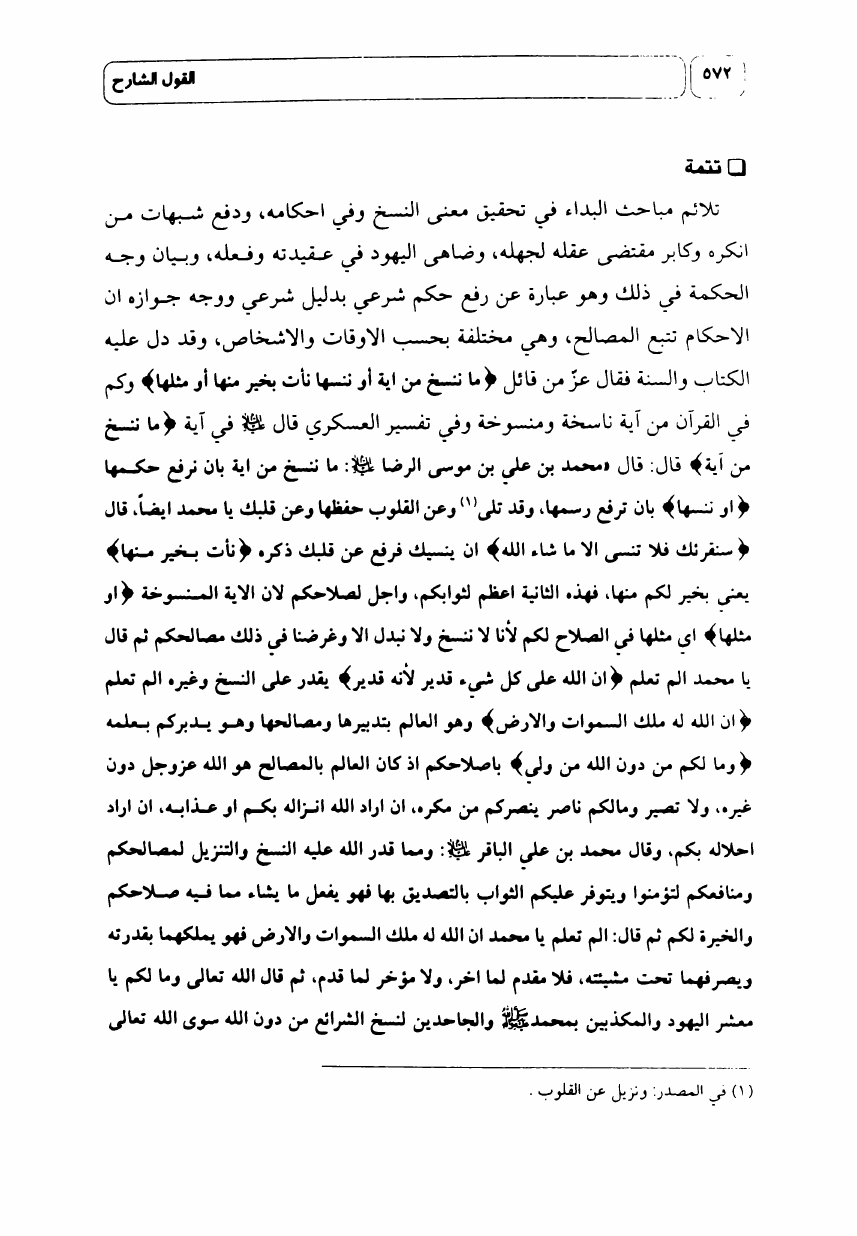 ٥٧٢
القول الشارح
❏ تتمة
تلائم مباحث البداء في تحقيق معنى النسخ وفي احكامه، ودفع شبهات من
انكره وكابر مقتضى عقله لجهله، وضاهى اليهود في عقيدته وفعله، وبيان وجه
الحكمة في ذلك وهو عبارة عن رفع حكم شرعي بدليل شرعي ووجه جوازه ان
الاحكام تتبع المصالح، وهي مختلفة بحسب الاوقات والاشخاص، وقد دل عليه
الكتاب والسنة فقال عزّ من قائل ﴿ما ننسخ من اية أو ننسها نأت بخير منها أو مثلها﴾ وكم
في القرآن من آية ناسخة ومنسوخة وفي تفسير العسكري قال ﷺ في آية ﴿ما ننسخ
من آية﴾ قال: قال «محمد بن علي بن موسى الرضا ﷺ: ما ننسخ من اية بان نرفع حكمها
﴿او ننسها﴾ بان ترفع رسمها، وقد تلى(١) وعن القلوب حفظها وعن قلبك يا محمد ايضاً، قال
﴿سنقرئك فلا تنسى الا ما شاء الله﴾ ان ينسيك فرفع عن قلبك ذكره ﴿نأت بخير منها﴾
يعني بخير لكم منها، فهذه الثانية اعظم لثوابكم، واجل لصلاحكم لان الاية المنسوخة ﴿او
مثلها﴾ اي مثلها في الصلاح لكم لأنا لا ننسخ ولا نبدل الا وغرضنا في ذلك مصالحكم ثم قال
يا محمد الم تعلم ﴿ان الله على كل شيء قدير لأنه قدير﴾ يقدر على النسخ وغيره الم تعلم
﴿ان الله له ملك السموات والارض﴾ وهو العالم بتدبيرها ومصالحها وهو يدبركم بعلمه
﴿وما لكم من دون الله من ولي﴾ باصلاحكم اذ كان العالم بالمصالح هو الله عزوجل دون
غيره، ولا تصير ومالكم ناصر ينصركم من مكره، ان اراد الله انزاله بكم او عذابه، ان اراد
احلاله بكم، وقال محمد بن علي الباقر ﷺ: ومما قدر الله عليه النسخ والتنزيل لمصالحكم
ومنافعكم لتؤمنوا ويتوفر عليكم الثواب بالتصديق بها فهو يفعل ما يشاء مما فيه صلاحكم
والخيرة لكم ثم قال: الم تعلم يا محمد ان الله له ملك السموات والارض فهو يملكهما بقدرته
ويصرفهما تحت مشيئته، فلا مقدم لما اخر، ولا مؤخر لما قدم، ثم قال الله تعالى وما لكم يا
معشر اليهود والمكذبين بمحمدﷺ والجاحدين لنسخ الشرائع من دون الله سوى الله تعالى
(١) في المصدر: ونزيل عن القلوب .